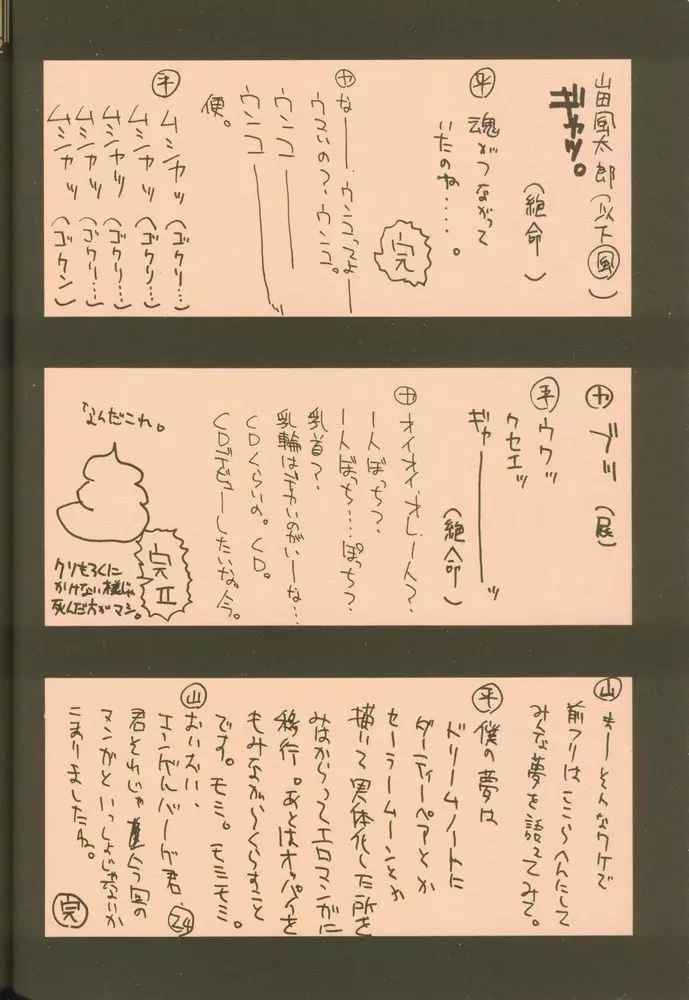 山田風太郎(以下風)
ギャッ。
(絶命)
平
魂がつながって
いたのね・・・・。
完
カ
なー、ウンコってよー
ウマいの?、ウンコ。
ウンコ――
ウンコ――ッ
便。
平
ムシャッ(ゴクリ…)
ムシャッ(ゴクリ…)
ムシャッ(ゴクリ…)
ムシャッ(ゴクリ…)
ムシャッ(ゴクン)
カ ブッ(屁)
平 ウウッ
クセエッ
ギャ――ッ
(絶命)
カ オイオイ、オレ一人?、
一人ぼっち?、
一人ぼっち…ぽっち?、
乳首?、
乳輪はデカいのがいーな…
CDくらいの。CD。
CDデビューしたいな。今。
なんだこれ。
完 II
クリもろくに
かけない様じゃ
死んだ方がマシ。
山 まーそんなワケで
前フリはここらへんにして
みんな夢を語ってみて。
平 僕の夢は
ドリームノートに
ダーティーペアとか
セーラームーンとか
描いて実体化した所を
みはからってエロマンガに
移行。あとはオッパイを
もみながらくらすこと
です。モミ。モミモミ。
山 おいおい、
エンゲルバーグ君 24
君それじゃ今回の
マンガといっしょじゃないか
こまりましたね。
完